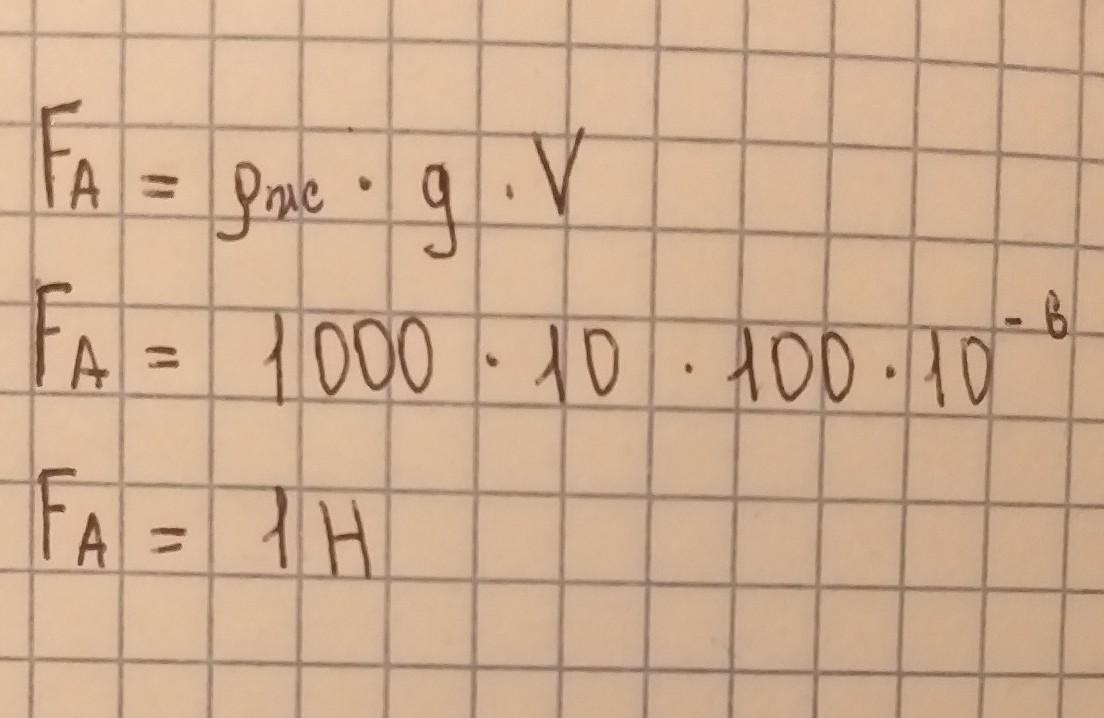 F_A = ρж · g · V
F_A = 1000 · 10 · 100 · 10^-6
F_A = 1 Н